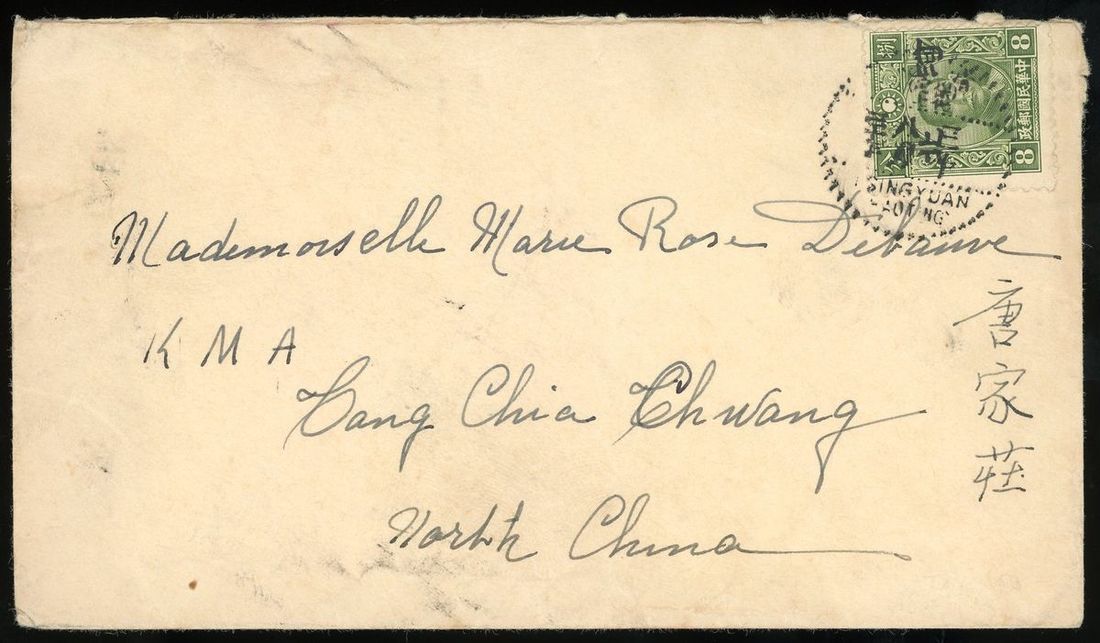 捌分
8
中華民國郵政
8
INGYUAN
Mademoiselle Marie Rose Debauve
K M A
Tang Chia Chwang
North China
唐家莊